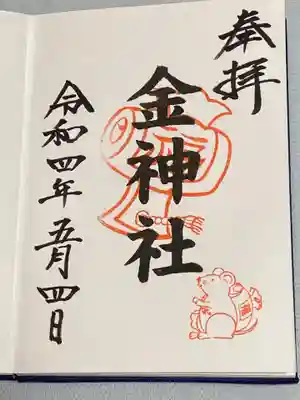 奉拝
金神社
令和四年五月四日